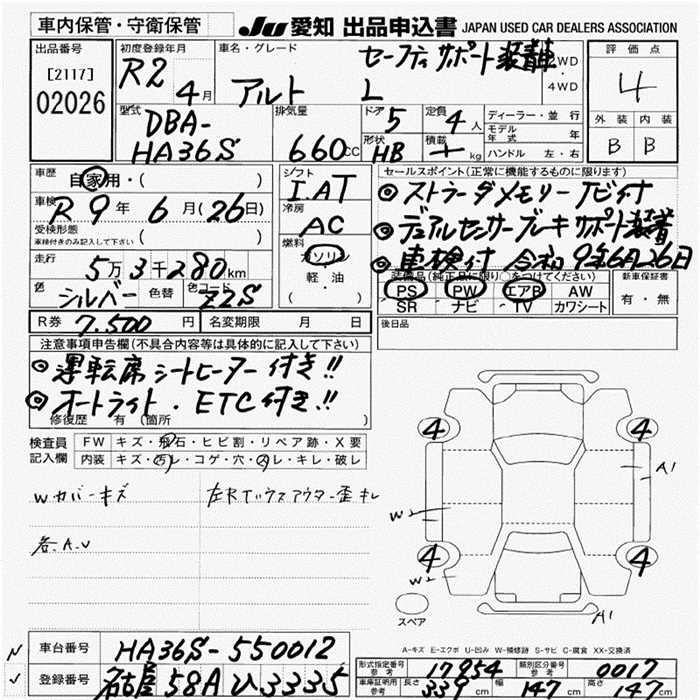 車内保管・守衛保管
JU 愛知 出品申込書 JAPAN USED CAR DEALERS ASSOCIATION
出品番号
[2117]
02026
初度登録年月
R2 4月
車名・グレード
アルト L
セーフティサポート装着車
2WD
・
4WD
評価点
4
外装 内装
B B
型式
DBA-
HA36S
排気量
660CC
ドア 5
定員 4人
形状 HB
積載 kg
ディーラー・並行
モデル年式 年
ハンドル 左・右
車歴 自家用・( )
車検 R9年6月(26日)
受検形態
車検付きのみ記入して下さい ( )
走行 5万3千280km
色 シルバー 色替 色コード Z2S
シフト
I.AT
冷房
AC
燃料
ガソリン
軽・油
( ・ )
セールスポイント(正常に機能するものに限ります)
◎ストラーダメモリーナビ付
◎デュアルセンサーブレーキサポート装着
◎車検付 令和9年6月26日
装備品(純正品に限り○をつけてください)
PS PW エアB AW
SR ナビ TV カワシート
新車保証書
有・無
後日品
R券 7.500円 名変期限 月 日
注意事項申告欄(不具合内容等は具体的に記入して下さい)
◎運転席シートヒーター付き!!
◎オートライト・ETC付き!!
修復歴 有 (箇所 )
検査員
記入欄
FW キズ・飛石・ヒビ割・リペア跡・X要
内装 キズ・汚レ・コゲ・穴・スレ・キレ・破レ
Wカバーキズ
各A.U
4 4
A1
W2
4 4
W2
A1
スペア
A-キズ E-エクボ U-凹み W-補修跡 S-サビ C-腐食 XX-交換済
車台番号 HA36S-550012
登録番号 名古屋 58A ひ3335
形式指定番号 参考 17954 類別区分番号 参考 0017
車庫証明用 参考 長さ 339cm 幅 147cm 高さ 147cm